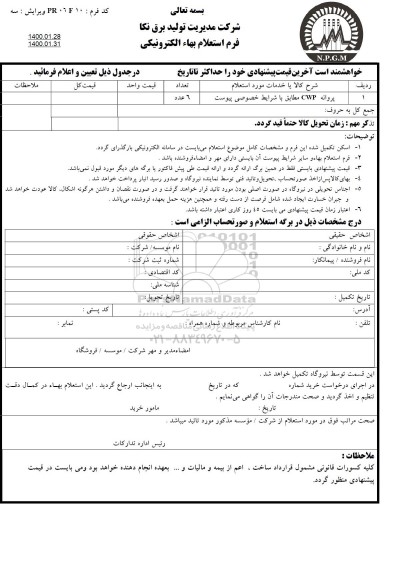 بسمه تعالی
کد فرم : PR ۰۶ F ۱۰ ویرایش : سه
شرکت مدیریت تولید برق نکا
فرم استعلام بهاء الکترونیکی
1400.01.28
1400.01.31
N.P.G.M
خواهشمند است آخرین قیمت پیشنهادی خود را حداکثر تا تاریخ درجدول ذیل تعیین و اعلام فرمائید .
ردیف شرح کالا یا خدمات مورد استعلام تعداد قیمت واحد قیمت کل ملاحظات
۱ پروانه CWP مطابق با شرایط خصوصی پیوست ۶ عدد
جمع کل به حروف:
تذکر مهم : زمان تحویل کالا حتماً قید گردد.
توضیحات:
۱- امکان تکمیل شده این فرم و مشخصات کامل موضوع استعلام می‌بایست در سامانه الکترونیکی بارگذرای گردد.
۲- فرم استعلام بهاءو سایر شرایط پیوست آن بایستی دارای مهر و امضاءفروشنده باشد .
۳- قیمت پیشنهادی بایستی فقط در همین برگ ارائه گردد و ارائه قیمت طی پیش فاکتور یا برگه های دیگر مورد قبول نمی‌باشد.
۴- بهای‌کالاپس‌ازاخذ صورتحساب ،تحویل‌وتائید فنی توسط نماینده نیروگاه و صدور رسید انبار پرداخت خواهد شد .
۵- اجناس تحویلی در نیروگاه در صورت اصلی بودن مورد تائید قرار خواهند گرفت و در صورت نقصان و داشتن هرگونه اشکال، کالا عودت خواهد شد
و جبران خسارت ایجاد شده شامل فرصت از دست رفته و همچنین هزینه حمل بعهده فروشنده می‌باشد .
۶- اعتبار زمان قیمت پیشنهادی می بایست ۴۵ روز کاری اعتبار داشته باشد.
درج مشخصات ذیل در برگه استعلام و صورتحساب الزامی است :
اشخاص حقیقی اشخاص حقوقی
نام و نام خانوادگی : نام موسسه/ شرکت :
نام فروشنده / پیمانکار: شماره ثبت شرکت :
کد ملی: کد اقتصادی:
شناسه ملی:
تاریخ تکمیل : تاریخ تحویل:
آدرس: کد پستی :
تلفن : نام کارشناس مربوطه و شماره همراه : نمابر :
ParsNamadData
۰۲۱-۸۸۳۴۹۶۷۰-۵
امضاءمدیر و مهر شرکت / موسسه / فروشگاه
این قسمت توسط نیروگاه تکمیل خواهد شد .
در اجرای درخواست خرید شماره که در تاریخ به اینجانب ارجاع گردید . این استعلام بهاء در کمال دقت
تنظیم و اخذ گردید و صحت مندرجات آن را گواهی می‌نمایم .
تاریخ : مامور خرید
صحت مراتب فوق در مورد استعلام از شرکت / مؤسسه مذکور مورد تائید میباشد .
رئیس اداره تدارکات
ملاحظات :
کلیه کسورات قانونی مشمول قرارداد ساخت ، اعم از بیمه و مالیات و ... بعهده انجام دهنده خواهد بود ومی بایست در قیمت
پیشنهادی منظور گردد.